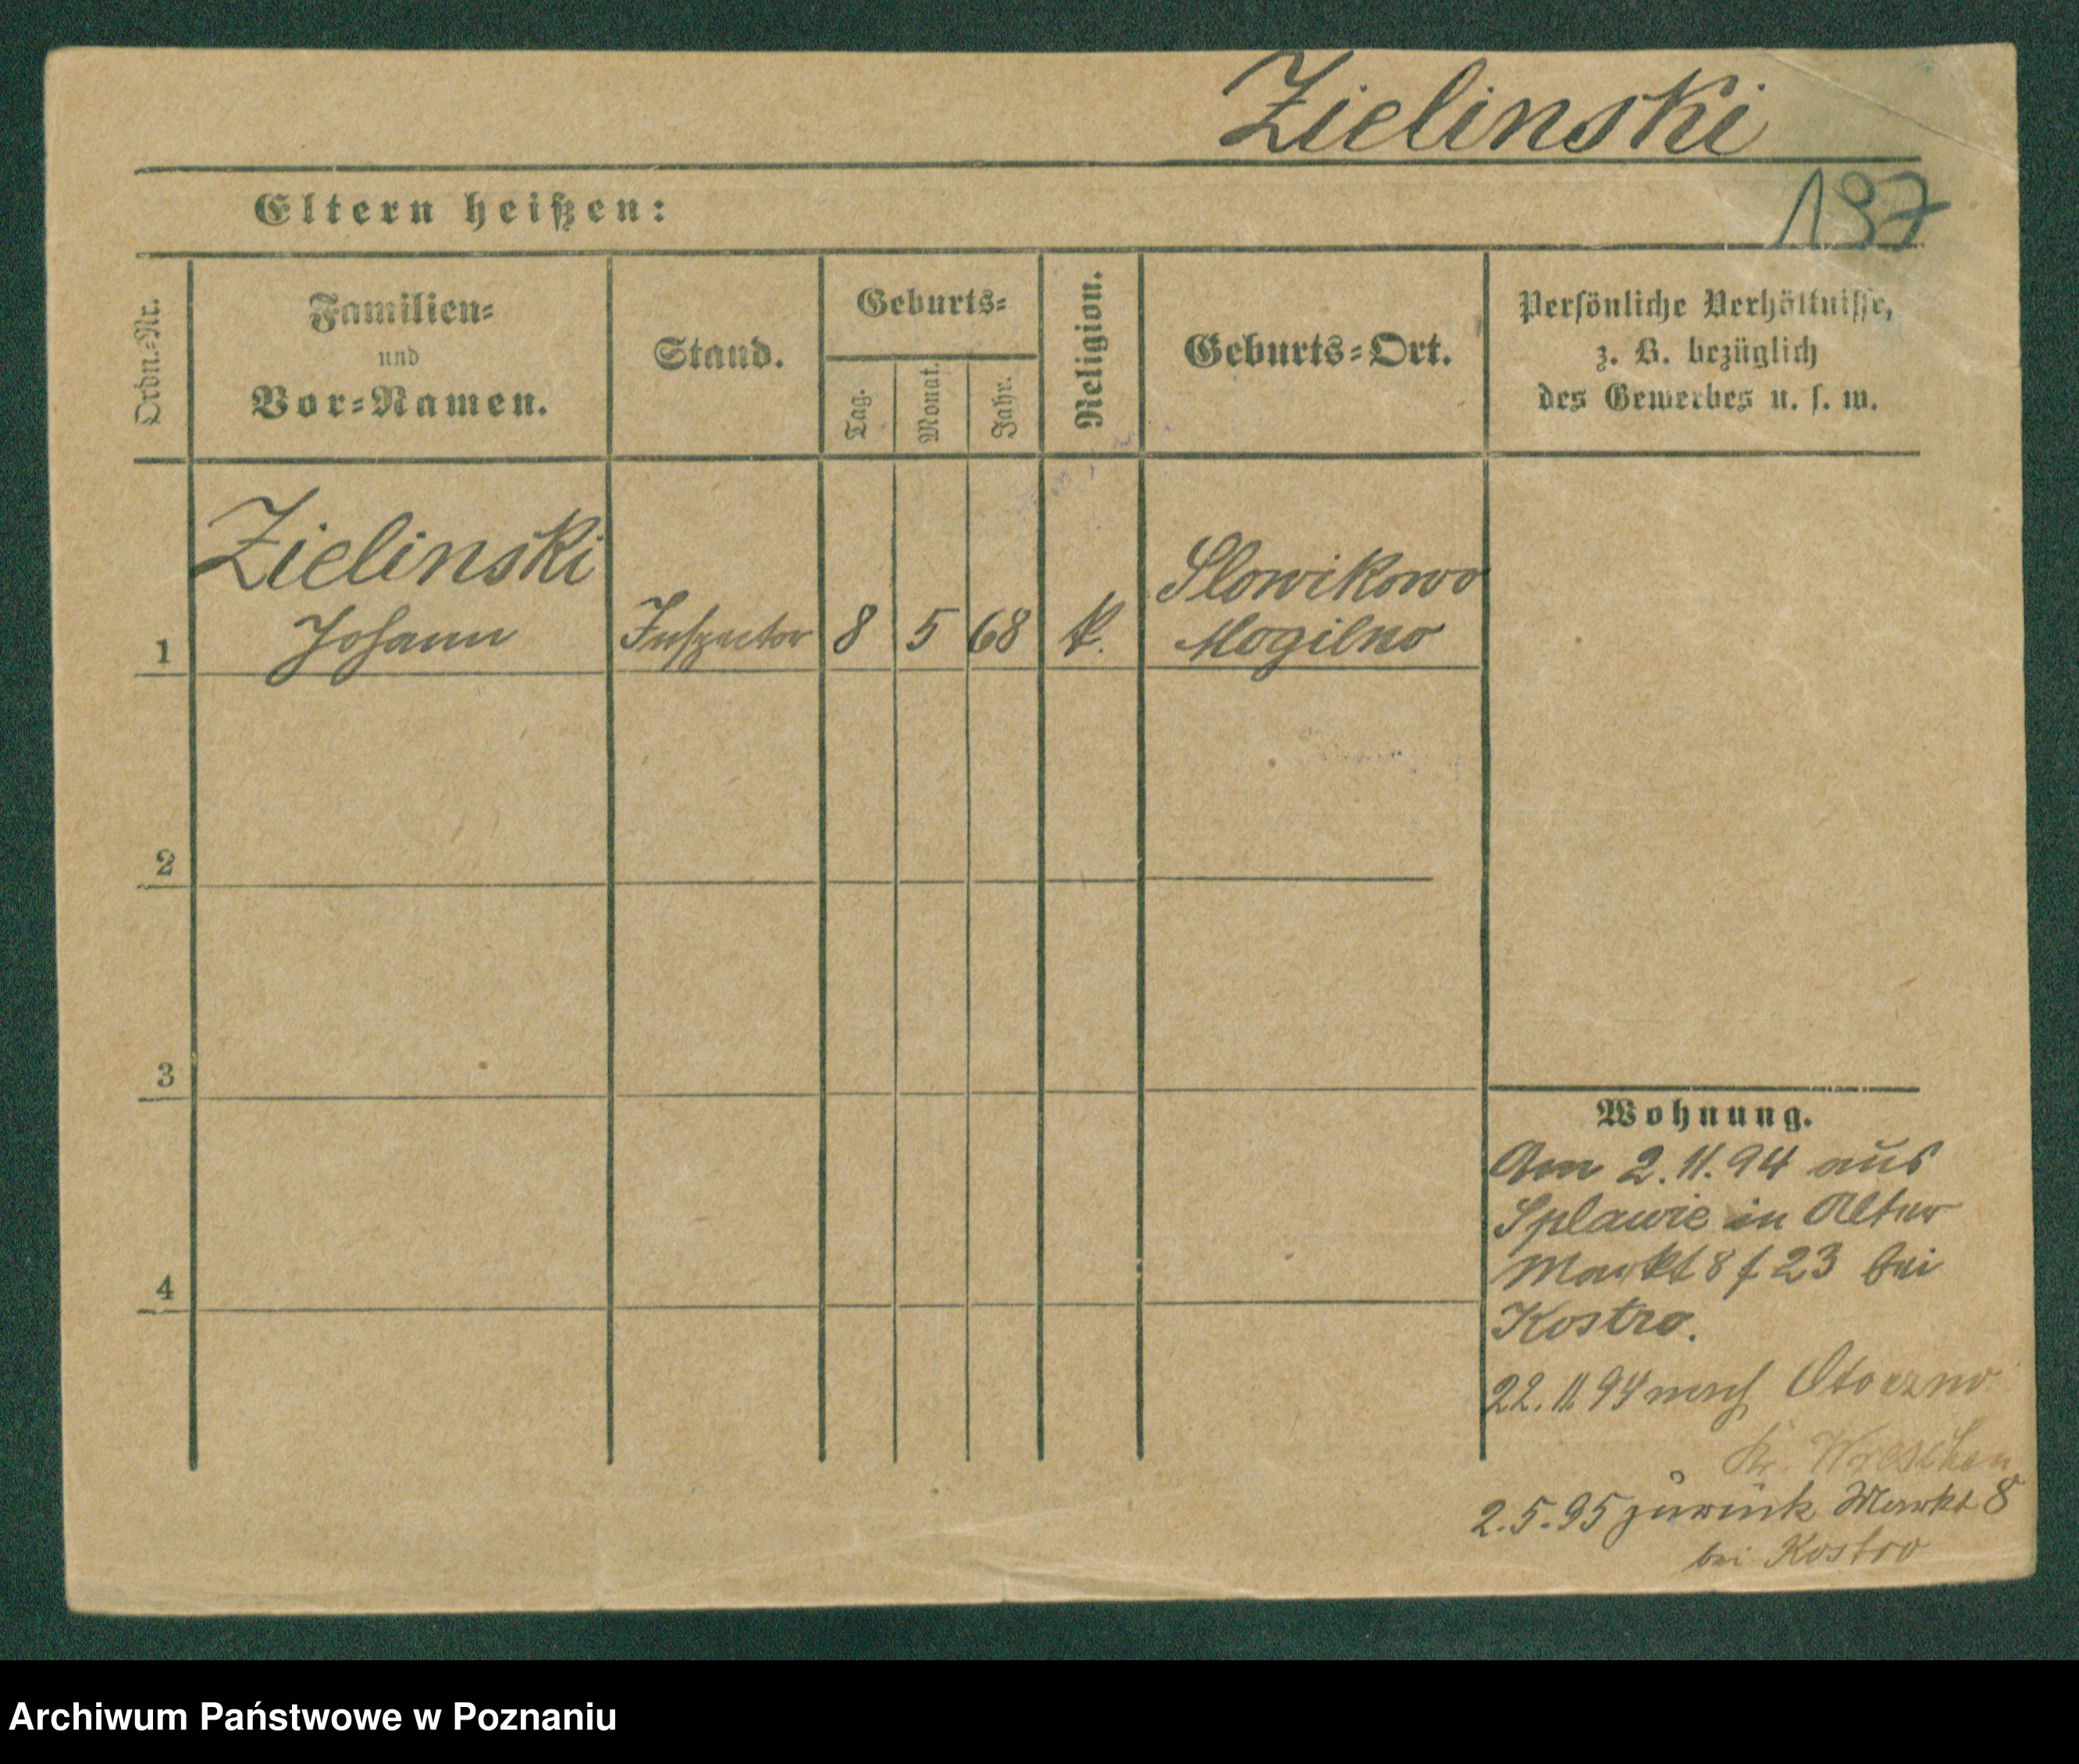 Zielinski
Eltern heißen:
197
Ordn.-Nr.
Familien-
und
Vor-Namen.
Stand.
Geburts-
Tag.
Monat.
Jahr.
Religion.
Geburts-Ort.
Persönliche Verhältnisse,
z. B. bezüglich
des Gewerbes u. s. w.
1
Zielinski
Johann
Inspector
8
5
68
k.
Slowikowo
Mogilno
2
3
4
Wohnung.
Am 2.11.94 aus
Splawie in Alter
Markt 8 f 23 bei
Kostro.
22.11.94 nach Otoczno
Kr. Wreschen
2.5.95 zurück Markt 8
bei Kostro
Archiwum Państwowe w Poznaniu